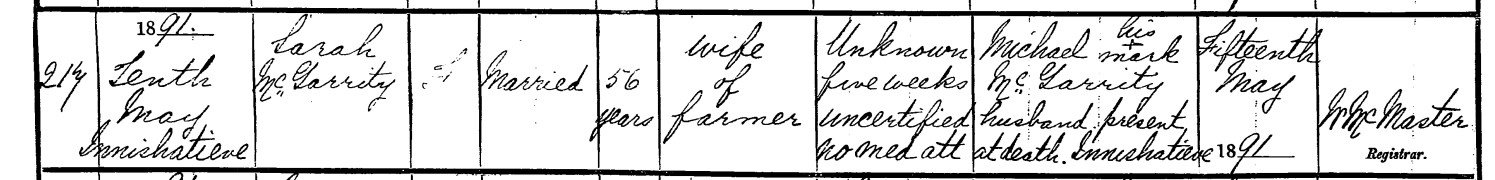 217
1891.
Tenth
May
Innishatieve
Sarah
McGarrity
F
Married
56
years
wife
of
farmer
Unknown
five weeks
uncertified
no med att
Michael his + mark
McGarrity
husband present
at death. Innishatieve
Fifteenth
May
1891
W McMaster
Registrar.